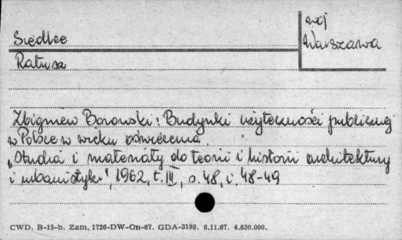 Siedlce
woj
Warszawa
Ratusz
Zbigniew Borowski: Budynki użyteczności publicznej
w Polsce w wieku oświecenia.
"Studia i materiały do teorii i historii architektury
i urbanistyki", 1962, t. III, s. 48, i. 48-49
CWD. B-15-b. Zam. 1726-DW-On-67. GDA-3198. 8.11.67. 4.630.000.